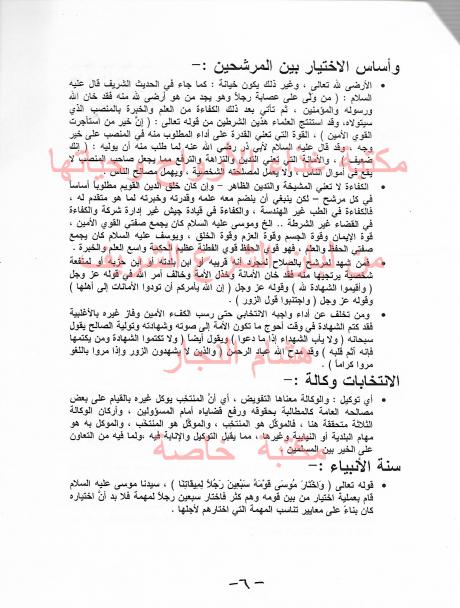 وأساس الاختيار بين المرشحين :-
• الأرضى لله تعالى ، وغير ذلك يكون خيانة : كما جاء في الحديث الشريف قال عليه
السلام : ( من ولّى على عصابة رجلاً وهو يجد من هو أرضى لله منه فقد خان الله
ورسوله والمؤمنين ، ثم تأتي بعد ذلك الكفاءة من العلم والخبرة بالمنصب الذي
سيتولاه، وقد استنتج العلماء هذين الشرطين من قوله تعالى : ( إن خير من استأجرت
القوي الأمين ) ، القوة التي تعني القدرة على أداء المطلوب منه في المنصب على خير
وجه ، وقد قال عليه السلام لأبي ذر رضي الله عنه لما طلب منه أن يوليه : ( إنك
ضعيف ) ، والأمانة التي تعني التدين والنزاهة والترفع مما يجعل صاحب المنصب لا
يقع في أموال الناس ، ولا يعمل لمصلحته الشخصية ، ويهمل مصالح الناس .
• الكفاءة لا تعني المشيخة والتدين الظاهر – وإن كان خلق الدين القويم مطلوباً أساساً
في كل مرشح – لكن ينبغي أن ينضم معه علمه وقدرته وخبرته لما هو متقدم له ،
فالكفاءة في الطب غير الهندسة ، والكفاءة في قيادة جيش غير إدارة شركة والكفاءة
في القضاء غير الشرطة .. الخ وموسى عليه السلام كان يجمع صفتي القوي الأمين ،
قوة الإيمان وقوة الجسم وقوة العزم وقوة الخلق ، ويوسف عليه السلام كان يجمع
صفتي الحفظ والعلم ، فهو قوي الحفظ قوي الفطنة عظيم الحكمة واسع العلم والخبرة .
• فمن شهد لمرشح بالصلاح لمجرد أنه قريبه أو ابن بلدته أو ابن حزبه أو لمنفعة
شخصية يرتجيها منه فقد خان الأمانة وخذل الأمة وخالف أمر الله في قوله عز وجل
( وأقيموا الشهادة لله ) وقوله عز وجل ( إن الله يأمركم أن تودوا الأمانات إلى أهلها )
وقوله عز وجل ( واجتنبوا قول الزور ) .
• ومن تخلف عن أداء واجبه الانتخابي حتى رسب الكفء الأمين وفاز غيره بالأغلبية
فقد كتم الشهادة في وقت أحوج ما تكون الأمة إلى صوته وشهادته وتولية الصالح يقول
سبحانه ( ولا يأب الشهداء إذا ما دعوا ) ويقول أيضاً ( ولا تكتموا الشهادة ومن يكتمها
فإنه آثم قلبه ) وقد مدح الله عباد الرحمن ( والذين لا يشهدون الزور وإذا مروا باللغو
مروا كراماً ) .
الانتخابات وكالة :-
• أي توكيل : والوكالة معناها التفويض ، أي أنّ المنتخب يوكل غيره بالقيام على بعض
مصالحه العامة كالمطالبة بحقوقه ورفع قضاياه أمام المسؤولين ، وأركان الوكالة
الثلاثة متحققة هنا ، فالموكّل هو المنتخب ، والموكّل هو المنتخب ، والموكل به هو
مهام البلدية أو النيابية وغيرها ، مما يقبل التوكيل والإنابة فيه .ولما فيه من التعاون
على الخير بين المسلمين .
سنة الأنبياء :-
• قوله تعالى ( وَاخْتَارَ مُوسَى قَوْمَهُ سَبْعِينَ رَجُلاً لِمِيقَاتِنَا ) ، سيدنا موسى عليه السلام
قام بعملية اختيار من بين قومه وهم كثر فاختار سبعين رجلاً لمهمة فلا بد أنّ اختياره
كان بناءً على معايير تناسب المهمة التي اختارهم لأجلها .
هشام النجار
مكتبة خاصة
-٦-